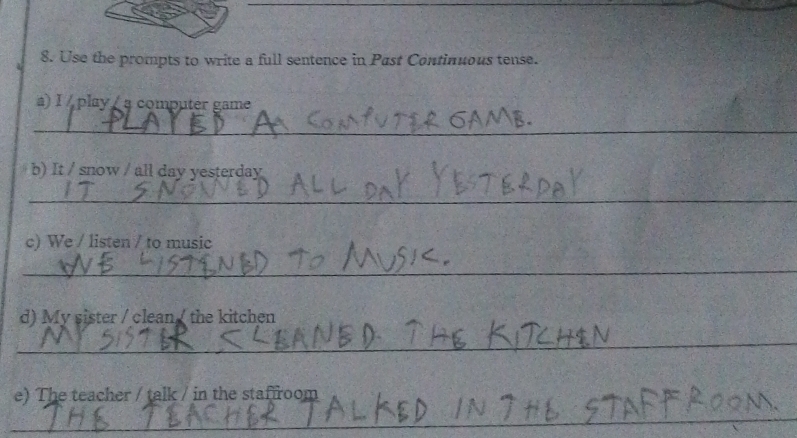 8. Use the prompts to write a full sentence in Past Continuous tense.
a) I / play / a computer game
I PLAYED A COMPUTER GAME.
b) It / snow / all day yesterday
IT SNOWED ALL DAY YESTERDAY
c) We / listen / to music
WE LISTENED TO MUSIC.
d) My sister / clean / the kitchen
MY SISTER CLEANED THE KITCHEN
e) The teacher / talk / in the staffroom
THE TEACHER TALKED IN THE STAFFROOM.